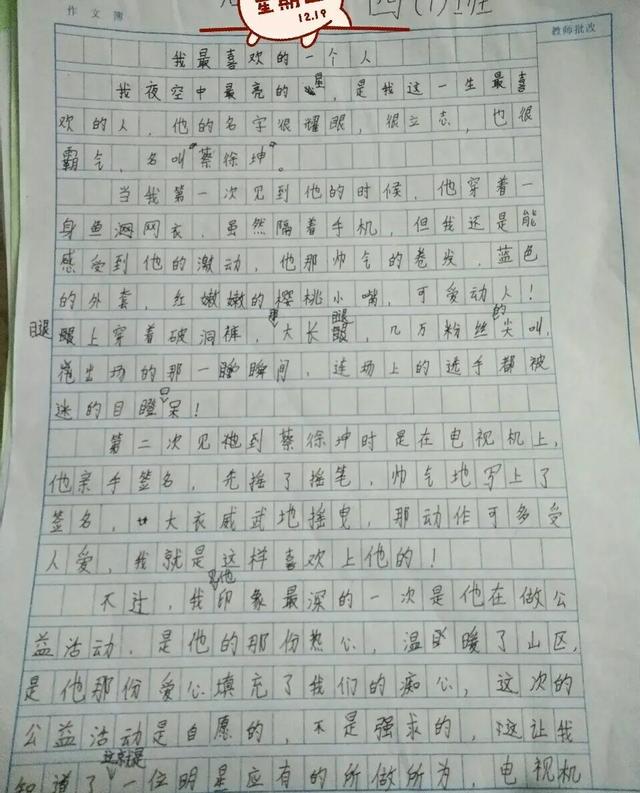 作文簿
星期
12.19
四(1)班
教师批改
我最喜欢的一个人
我夜空中最亮的星，是我这一生最喜
欢的人，他的名字很耀眼，很立志，也很
霸气，名叫“蔡徐坤”。
当我第一次见到他的时候，他穿着一
身鱼渔网衣，虽然隔着手机，但我还是能
感受到他的激动，他那帅气的卷发，蓝色
的外套，红嫩嫩的樱桃小嘴，可爱动人！
腿上穿着破洞裤，那大长腿，几万粉丝的尖叫，
他出场的那一瞬间，连场上的选手都被
迷的目瞪口呆！
第二次见到蔡徐坤时是在电视机上，
他亲手签名，先摇了摇笔，帅气地写上了
签名，大衣威武地摇曳，那动作可多受
人爱，我就是这样喜欢上他的！
不过，我见他印象最深的一次是他在做公
益活动，是他的那份热心，温暖了山区，
是他那份爱心填充了我们的痴心，这次的
公益活动是自愿的，不是强求的，这让我
知道了这就是一位明星应有的所做所为，电视机